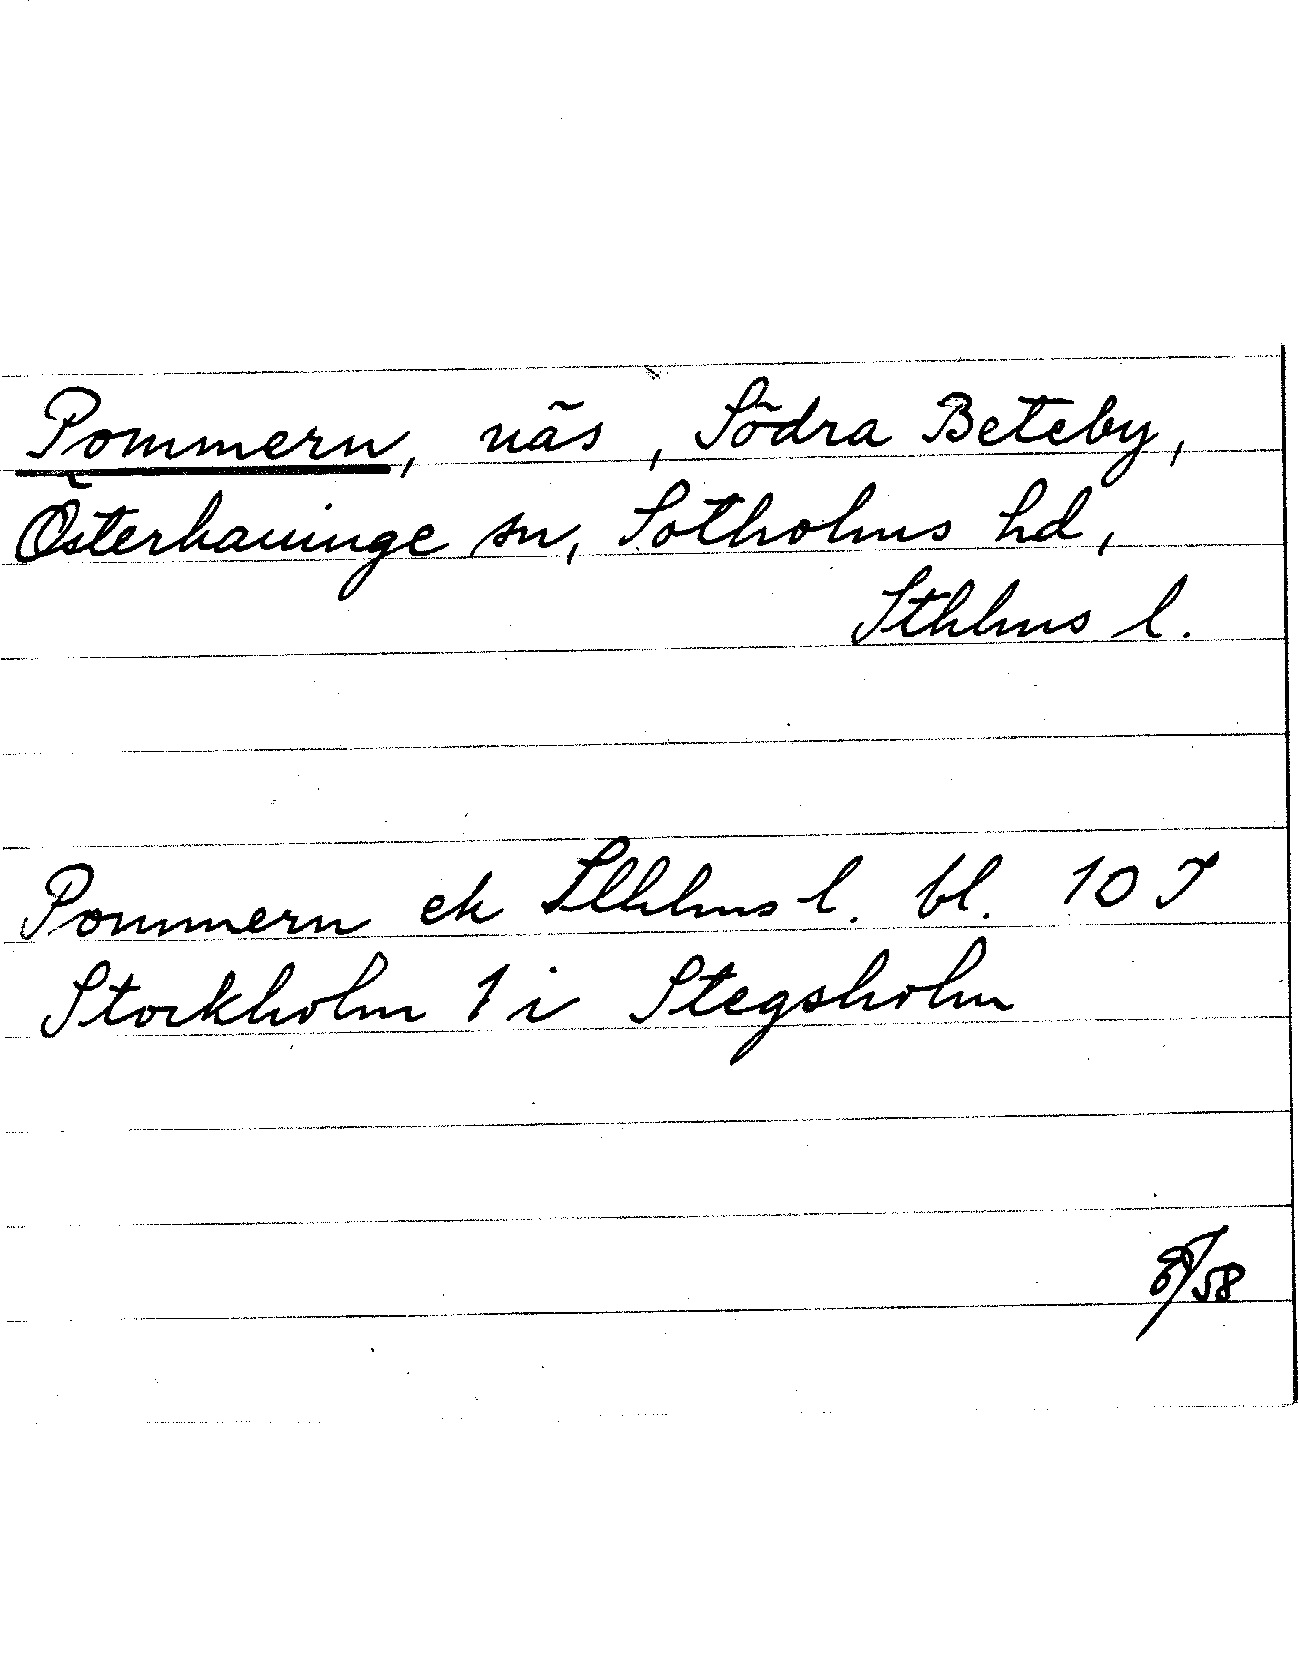 Pommern, näs, Södra Beteby,
Österhaninge sn, Sotholms hd,
Sthlms l.
Pommern ek Sthlms l. bl. 10 I
Stockholm 1 i Stegsholm
58